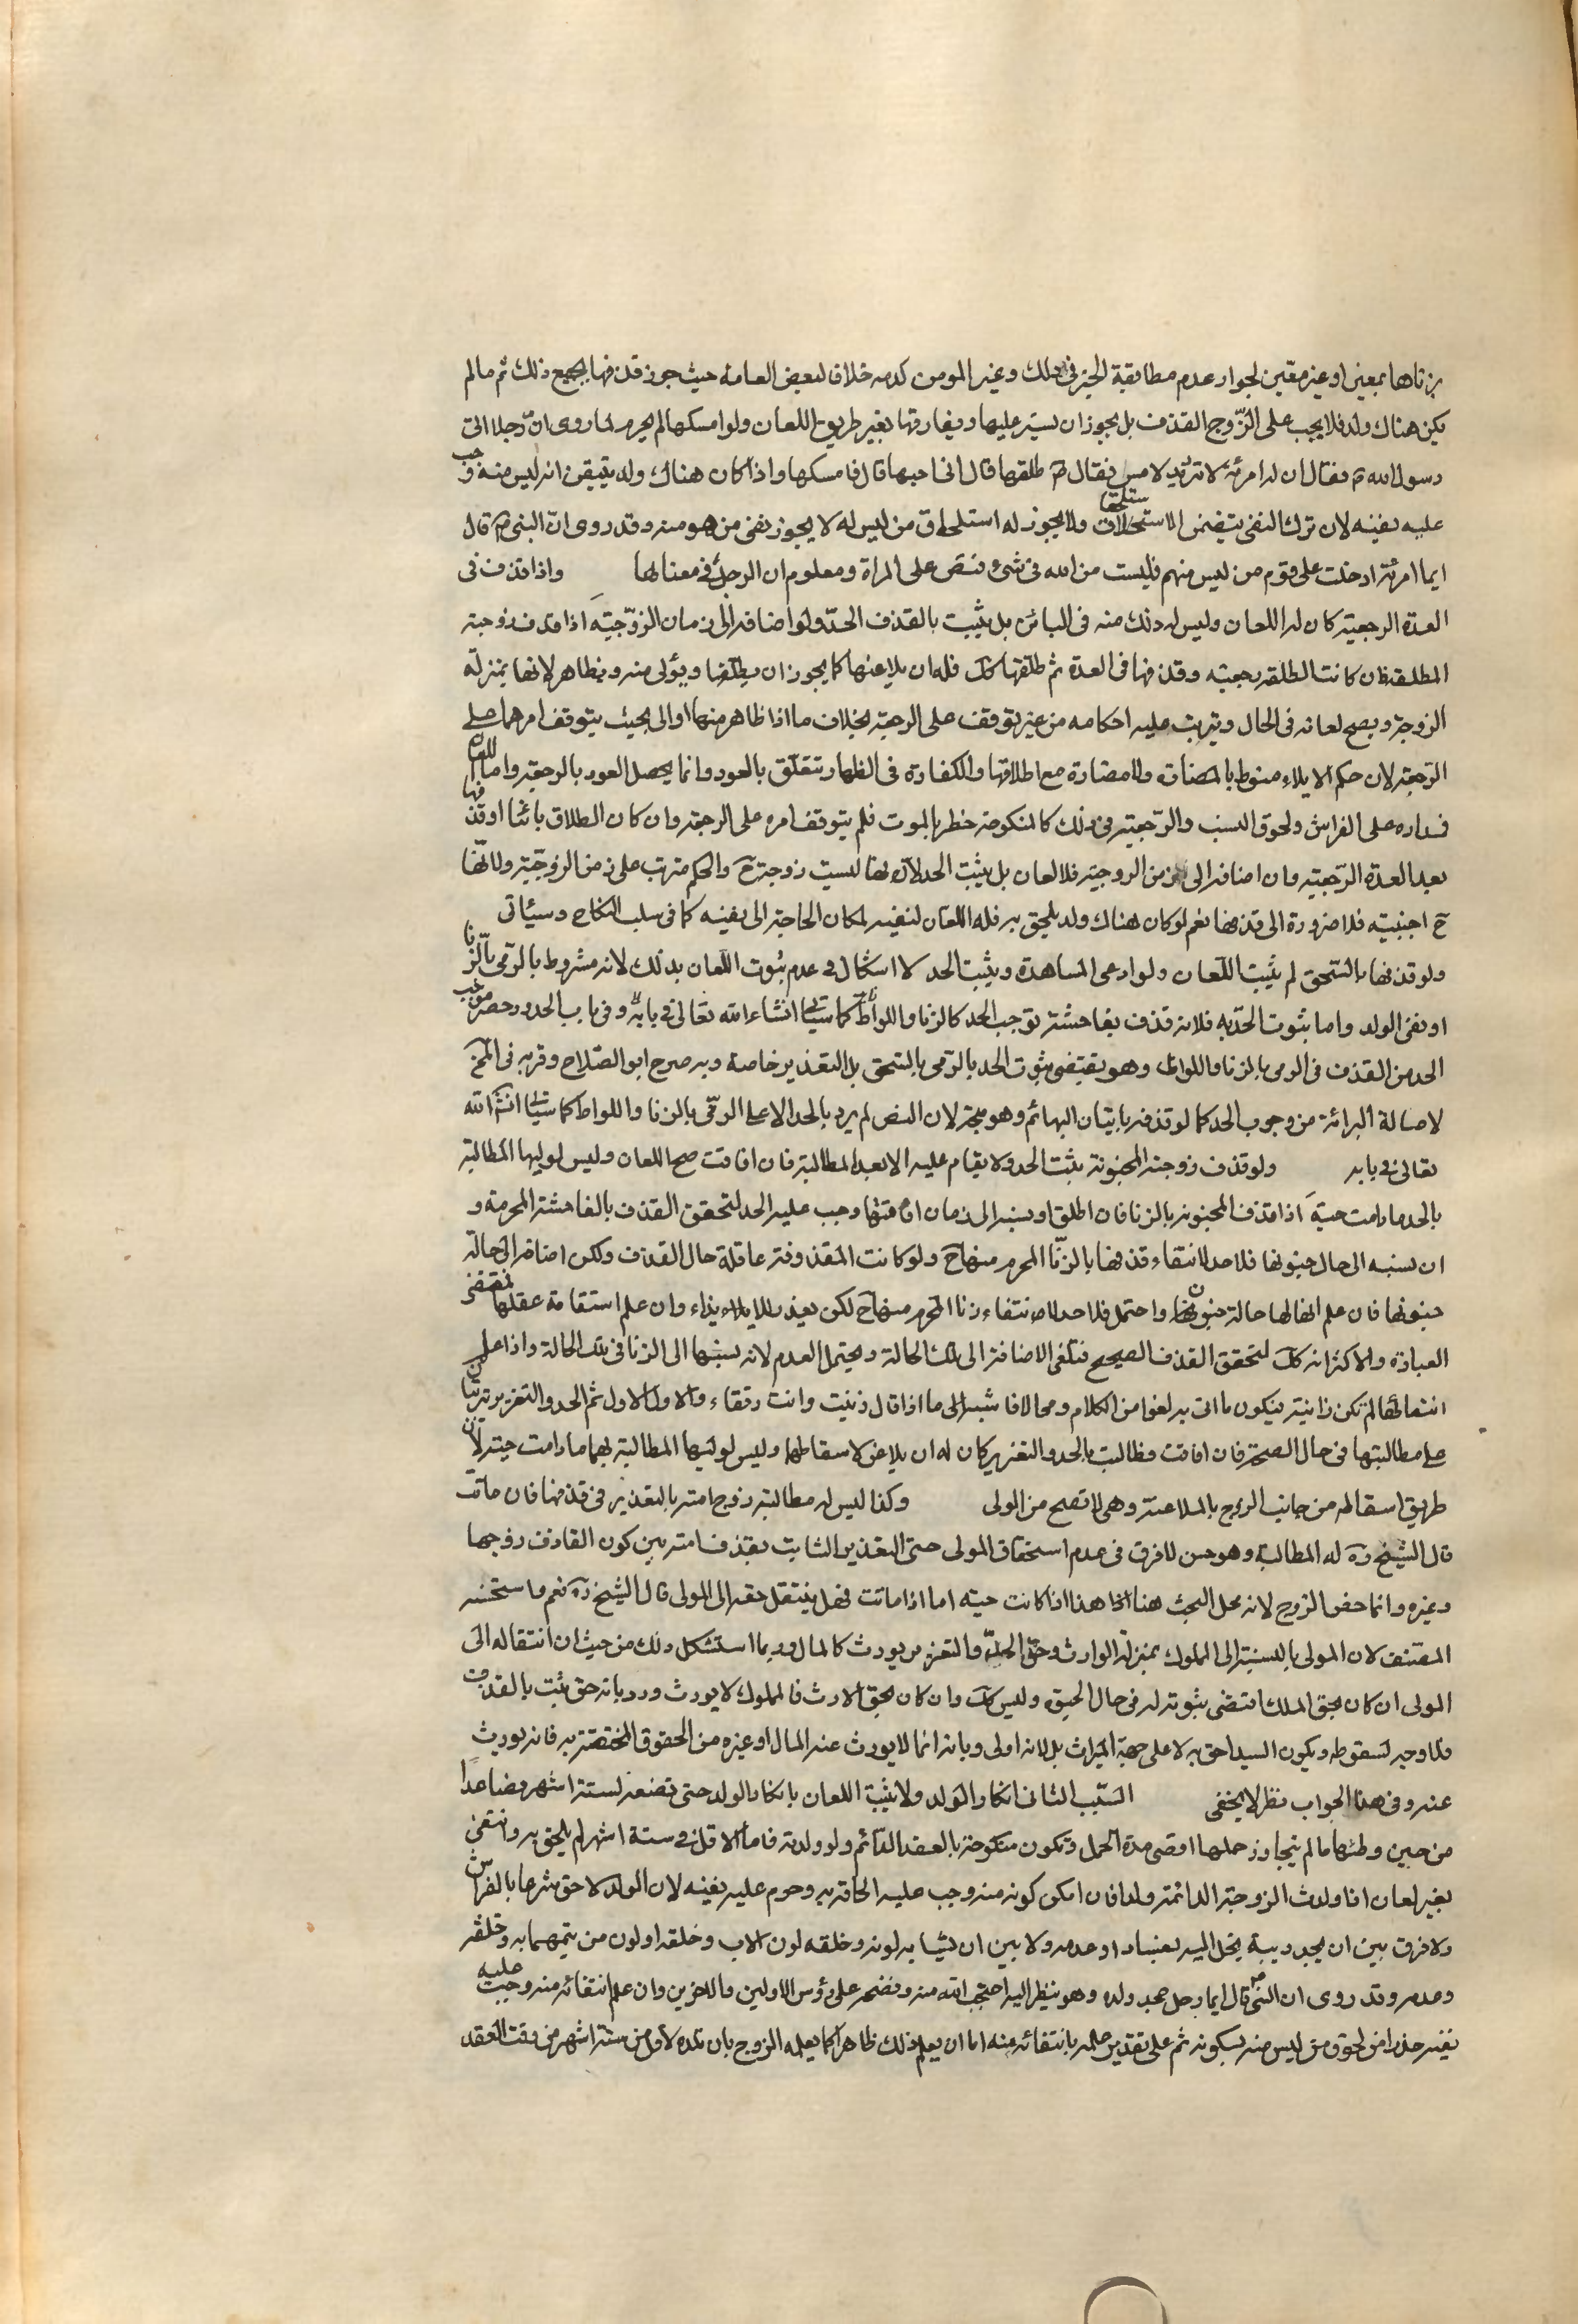 بزناها بمعين او غير معين لجواز عدم مطابقة الخبر فى ذلك وغير المومن كذمه خلافا لبعض العامة حيث جوز قذفها بجميع ذلك ثم مالم
يكن هناك ولد فلا يجب على الزّوج القذف بل يجوز ان يستر عليها ويفارقها بغير طريق اللعان ولو امسكها لم يحرم لما روى انّ رجلا اتى
رسول الله ص فقال ان له امرئة لا ترد يد لامس فقال ص طلقها قال انى احبها قال فامسكها واذا كان هناك ولد يتيقن انه ليس منه وجب
عليه نفيه لان ترك النفى يتضمن الاستلحاق ولا يجوز له استلحاق من ليس له لا يجوز نفى من هو منه وقد روى انّ النبى ص قال
ايما امرئة ادخلت على قوم من ليس منهم فليست من الله فى شئ فنص على المراة ومعلوم ان الرجل فى معناها واذا قذف فى
العدة الرجعية كان له اللعان وليس له ذلك منه فى البائن بل يثبت بالقذف الحدّ ولو اضافه الى زمان الزوّجيّة اذا قذف زوجته
المطلقة فان كانت الطلقة رجعية وقذفها فى العدة ثم طلقها كك فله ان يلاعنها كما يجوز ان يطلّقها ويؤلى منه ويظاهر لانها بمنزلة
الزوجة ويصح لعانه فى الحال ويترتب عليه احكامه من غير توقف على الرجعة بخلاف ما اذا ظاهر منها او الى بحيث يتوقف امرهما على
الرّجعة لان حكم الايلاء منوط بالمضارة ولا مضارة مع اطلاقها والكفارة فى الظهار تتعلّق بالعود وانما يحصل العود بالرجعة واما اللعان
فمداره على الفراش ولحوق النسب والرّجعية فى ذلك كالمنكوحة خطر بالموت فلم يتوقف امره على الرجعة وان كان الطلاق بائنا او قذفها
بعد العدة الرّجعية وان اضافه الى زمن الزوجية فلا لعان بل يثبت الحد لانها ليست زوجته ح والحكم مترتب على زمن الزوجّية ولانّها
ح اجنبية فلا ضرورة الى قذفها نعم لو كان هناك ولد يلحق به فله اللعان لنفيه لمكان الحاجة الى نفيه كما فى صلب النكاح وسيئاتى
ولو قذفها بالسحق لم يثبت اللّعان ولو ادعى المشاهدة ويثبت الحد لا اشكال فى عدم ثبوت اللّعان بذلك لانه مشروط بالرّمى بالّزنا
او نفى الولد واما ثبوت الحدّ به فلانه قذف بفاحشة توجب الحد كالزنا واللواط كما سيئاتى انشاء الله تعالى فى بابه وفى باب الحدود حصر موجب
الحد من القذف فى الرمى بالزنا واللواط وهو يقتضى ثبوت الحد بالرّمى بالسحق بل التعذير خاصة وبه صرح ابو الصّلاح وقربه فى المخ
لاصالة البرائة من وجوب الحد كما لو قذفه باتيان البهائم وهو متجه لان النص لم يرد بالحد الا على الرّمى بالزنا واللواط كما سيئاتى انش الله
تعالى فى بابه ولو قذف زوجته المجنونة يثبت الحد ولا يقام عليه الا بعد المطالبة فان افاقت صح اللعان وليس لوليها المطالبة
بالحد ما دامت حيّة اذا قذف المجنونه بالزنا فان اطلق او نسبه الى زمان افاقتها وجب عليه الحد لتحقق القذف بالفاحشة المحرمة و
ان نسبه الى حال جنونها فلا حد لانتفاء قذفها بالزنّا المحرم منها ح ولو كانت المقذوفة عاقلة حال القذف ولكن اضافه الى حالة
جنونها فان علم ان لها حالة جنون او احتمل فلا حد لانتفاء زنا المحرم منها ح لكن يعذر للايذاء وان علم استقامة عقلها فمقتضى
العبارة والاكثر انه كك لتحقق القذف الصحيح فتلغى الاضافة الى تلك الحالة ويحتمل العدم لانه نسبها الى الزنا فى تلك الحالة واذا علم
انتفائها لم تكن زانية فيكون ما اتى به لغوا من الكلام ومحالا فاشبه الى ما اذا قال زنيت وانت رتقاء والاول الاول ثم الحد والتعزير يترتبان
على مطالبتها فى حال الصحة فان افاقت وطالبت بالحد والتعزير كان له ان يلاعن لاسقاطها وليس لوليها المطالبة بهما ما دامت حية لان
طريق اسقاطه من جانب الزوج بالملاعنة وهى لا تصح من المولى وكذا ليس له مطالبة زوج امته بالتعذير فى قذفها فان ماتت
قال الشيخ ره له المطالبة وهو حسن لا فرق فى عدم استحقاق المولى حق التعذير الثابت بقذف امته بين كون القاذف زوجها
وغيره وانما خص الزوج لانه محل البحث هنا هذا اذا كانت حيّة اما اذا ماتت فهل ينتقل حقه الى المولى قال الشيخ ره نعم واستحسنه
المصنف لان المولى بالنسبة الى المملوك بمنزلة الوارث وحق الحدّ والتعزير يورث كالمال وربما استشكل ذلك من حيث ان انتقاله الى
المولى ان كان بحق الملك اقتضى ثبوته له فى حال الحيوة وليس كك وان كان بحق الارث فالمملوك لا يورث ورد بانه حق ثبت بالقذف
فلا وجه لسقوطه ويكون السيد احق به لا على جهة الميراث بل لانه اولى وبانه انما لا يورث عنه المال او غيره من الحقوق المختصّة به فانه يورث
عنه وفى هذا الجواب نظر لا يخفى السّبب الثانى انكار الولد ولا يثبت اللعان بانكار الولد حتى تضعه لستة اشهر فصاعدا
من حين وطئها ما لم يتجاوز حملها اقصى مدة الحمل وتكون منكوحة بالعقد الدائم ولو ولدته تاما لاقل من ستة اشهر لم يلحق به وانتفى
بغير لعان اذا ولدت الزوجة الدائمة ولدا فان امكن كونه منه وجب عليه الحاقه به وحرم عليه نفيه لان الولد لاحق شرعا بالفراش
ولا فرق بين ان يجد ريبة يخل اليه بفساد او عدمه ولا بين ان يشابه لونه وخلقه لون الاب وخلقه او لون من يتهمها به وخلقه
وعدمه وقد روى ان النبى ص قال ايما رجل جحد ولده وهو ينظر اليه احتجب الله منه وفضحه على رؤس الاولين والاخرين وان علم انتفائه منه وجب عليه
نفيه حذرا من لحوق من ليس منه بسكوته ثم على تقدير علمه بانتفائه عنه اما ان يعلم ذلك ظاهرا كما يعلمه الزوج بان تلده لاقل من ستة اشهر من وقت العقد